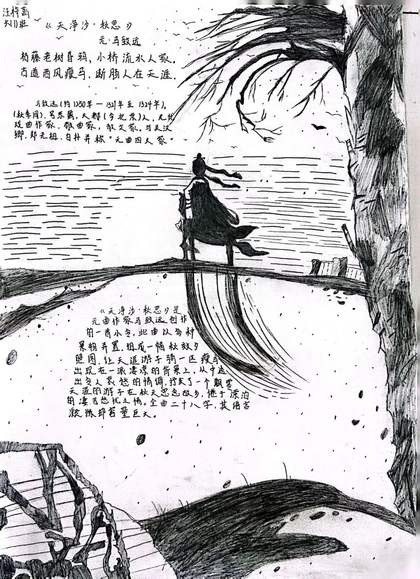 汪梓菡
《天净沙·秋思》
元·马致远
枯藤老树昏鸦,小桥流水人家,
古道西风瘦马,断肠人在天涯。
马致远(约1250年—1321年至1324年),
戏曲作家,散曲家,散文家,与关汉
卿、郑光祖、白朴并称"元曲四大家
《天净沙·秋思》是
元曲作家马致远创作
的一首小令,此曲以多种
景物并置,组成一幅秋郊夕
照图,让天涯游子骑一匹瘦马
出现在一派凄凉的背景上,从中透
出令人哀愁的情调,抒发了一个飘零
天涯的游子在秋天思念故乡,倦于漂泊
的凄苦愁楚之情。全曲二十八字,其语言
凝练却容量巨大。